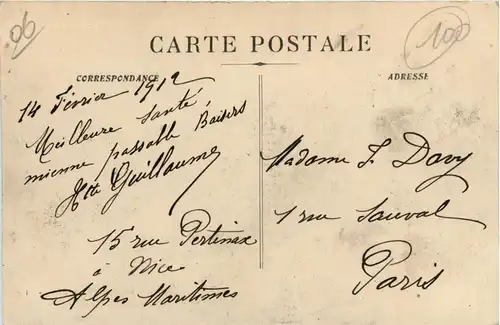 06
100
CARTE POSTALE
CORRESPONDANCE
ADRESSE
14 Février 1912
Meilleure santé
mienne passable Baisers
Hte Guillaume
15 rue Pertinax
à Nice
Alpes Maritimes
Madame F. Davy
1 rue Sauval
Paris